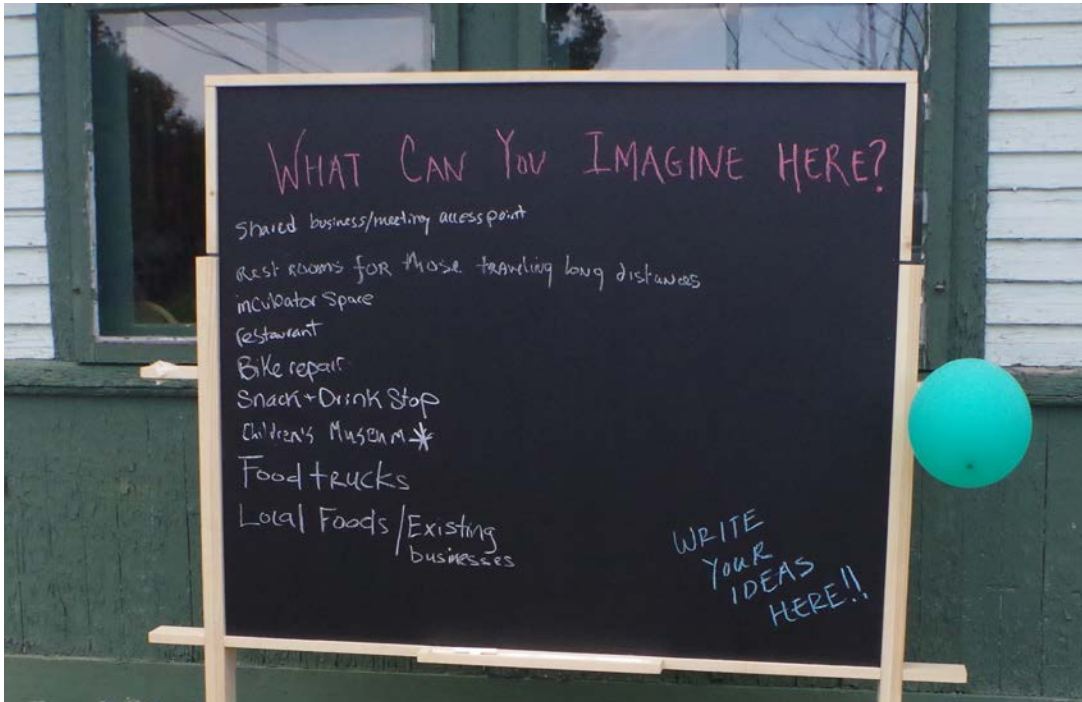 WHAT CAN YOU IMAGINE HERE?
Shared business/meeting access point
Rest Rooms for those traveling long distances
incubator Space
restaurant
Bike repair
Snack + Drink Stop
Children's Museum *
Food trucks
Local Foods / Existing
businesses
WRITE
YOUR
IDEAS
HERE!!